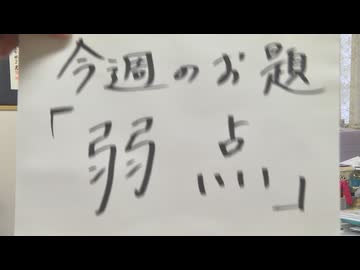 今週のお題
「弱点」